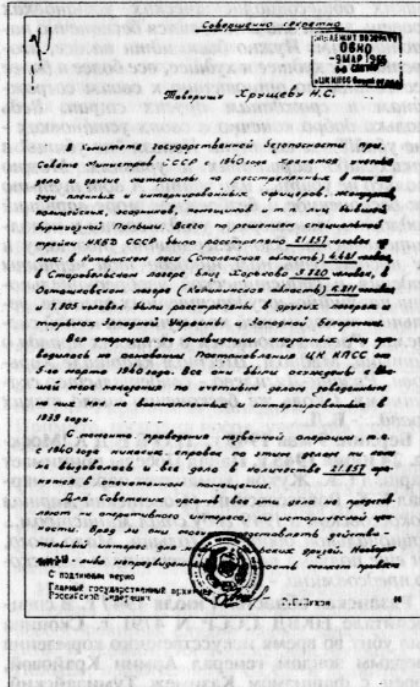 Совершенно секретно
ПОДЛЕЖИТ ВОЗВРАТУ
9 МАР 1965
Товарищу Хрущеву Н.С.
В Комитете государственной безопасности при
Совете Министров СССР с 1940 года хранятся учетные
дела и на расстрелянных в том же
году пленных и интернированных офицеров, жандармов,
полицейских, осадников, помещиков и т.п. лиц бывшей
буржуазной Польши. Всего по решениям специальной
тройки НКВД СССР было расстреляно 21.857 человек, из
них: в Катынском лесу (Смоленская область) 4.421 человек,
в Старобельском лагере близ Харькова 3.820 человек, в
Осташковском лагере (Калининская область) 6.311 человек
и 7.305 человек были расстреляны в других лагерях и
тюрьмах Западной Украины и Западной Белоруссии.
Вся операция по ликвидации указанных лиц про-
водилась на основании Постановления ЦК КПСС от
5-го марта 1940 года. Все они были осуждены к выс-
шей мере наказания по учетным делам, заведенным
на них как на военнопленных и интернированных в
1939 году.
С момента проведения названной операции, т.е.
с 1940 года никаких справок по этим делам никому
не выдавалось и все дела в количестве 21.857 хра-
нятся в опечатанном
Для Советских органов все эти дела не представ-
ляют ни оперативного интереса, ни исторической цен-
ности.
интерес для наших польских друзей. Наоборот
какая-либо
С подлинным верно
Главный государственный архивист
Российской Федерации